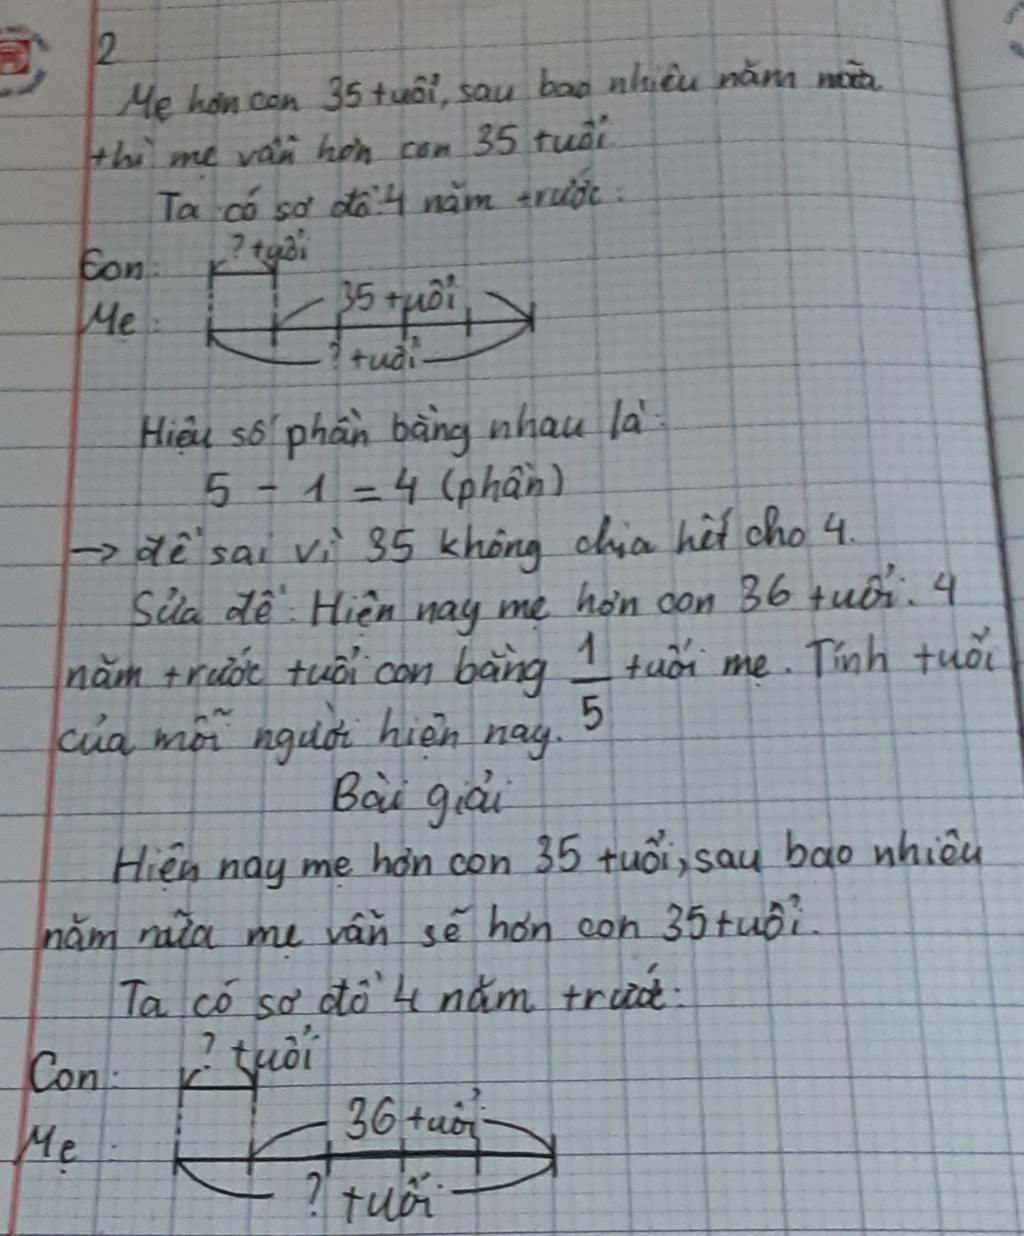 2
Mẹ hơn con 35 tuổi, sau bao nhiêu năm nữa
thì mẹ vẫn hơn con 35 tuổi.
Ta có sơ đồ 4 năm trước:
? tuổi
Con:
35 tuổi
Mẹ:
? tuổi
Hiệu số phần bằng nhau là:
5 - 1 = 4 (phần)
→ đề sai vì 35 không chia hết cho 4.
Sửa đề: Hiện nay mẹ hơn con 36 tuổi. 4
năm trước tuổi con bằng 1/5 tuổi mẹ. Tính tuổi
của mỗi người hiện nay.
Bài giải
Hiện nay mẹ hơn con 35 tuổi, sau bao nhiêu
năm nữa mẹ vẫn sẽ hơn con 35 tuổi.
Ta có sơ đồ 4 năm trước:
? tuổi
Con:
36 tuổi
Mẹ:
? tuổi